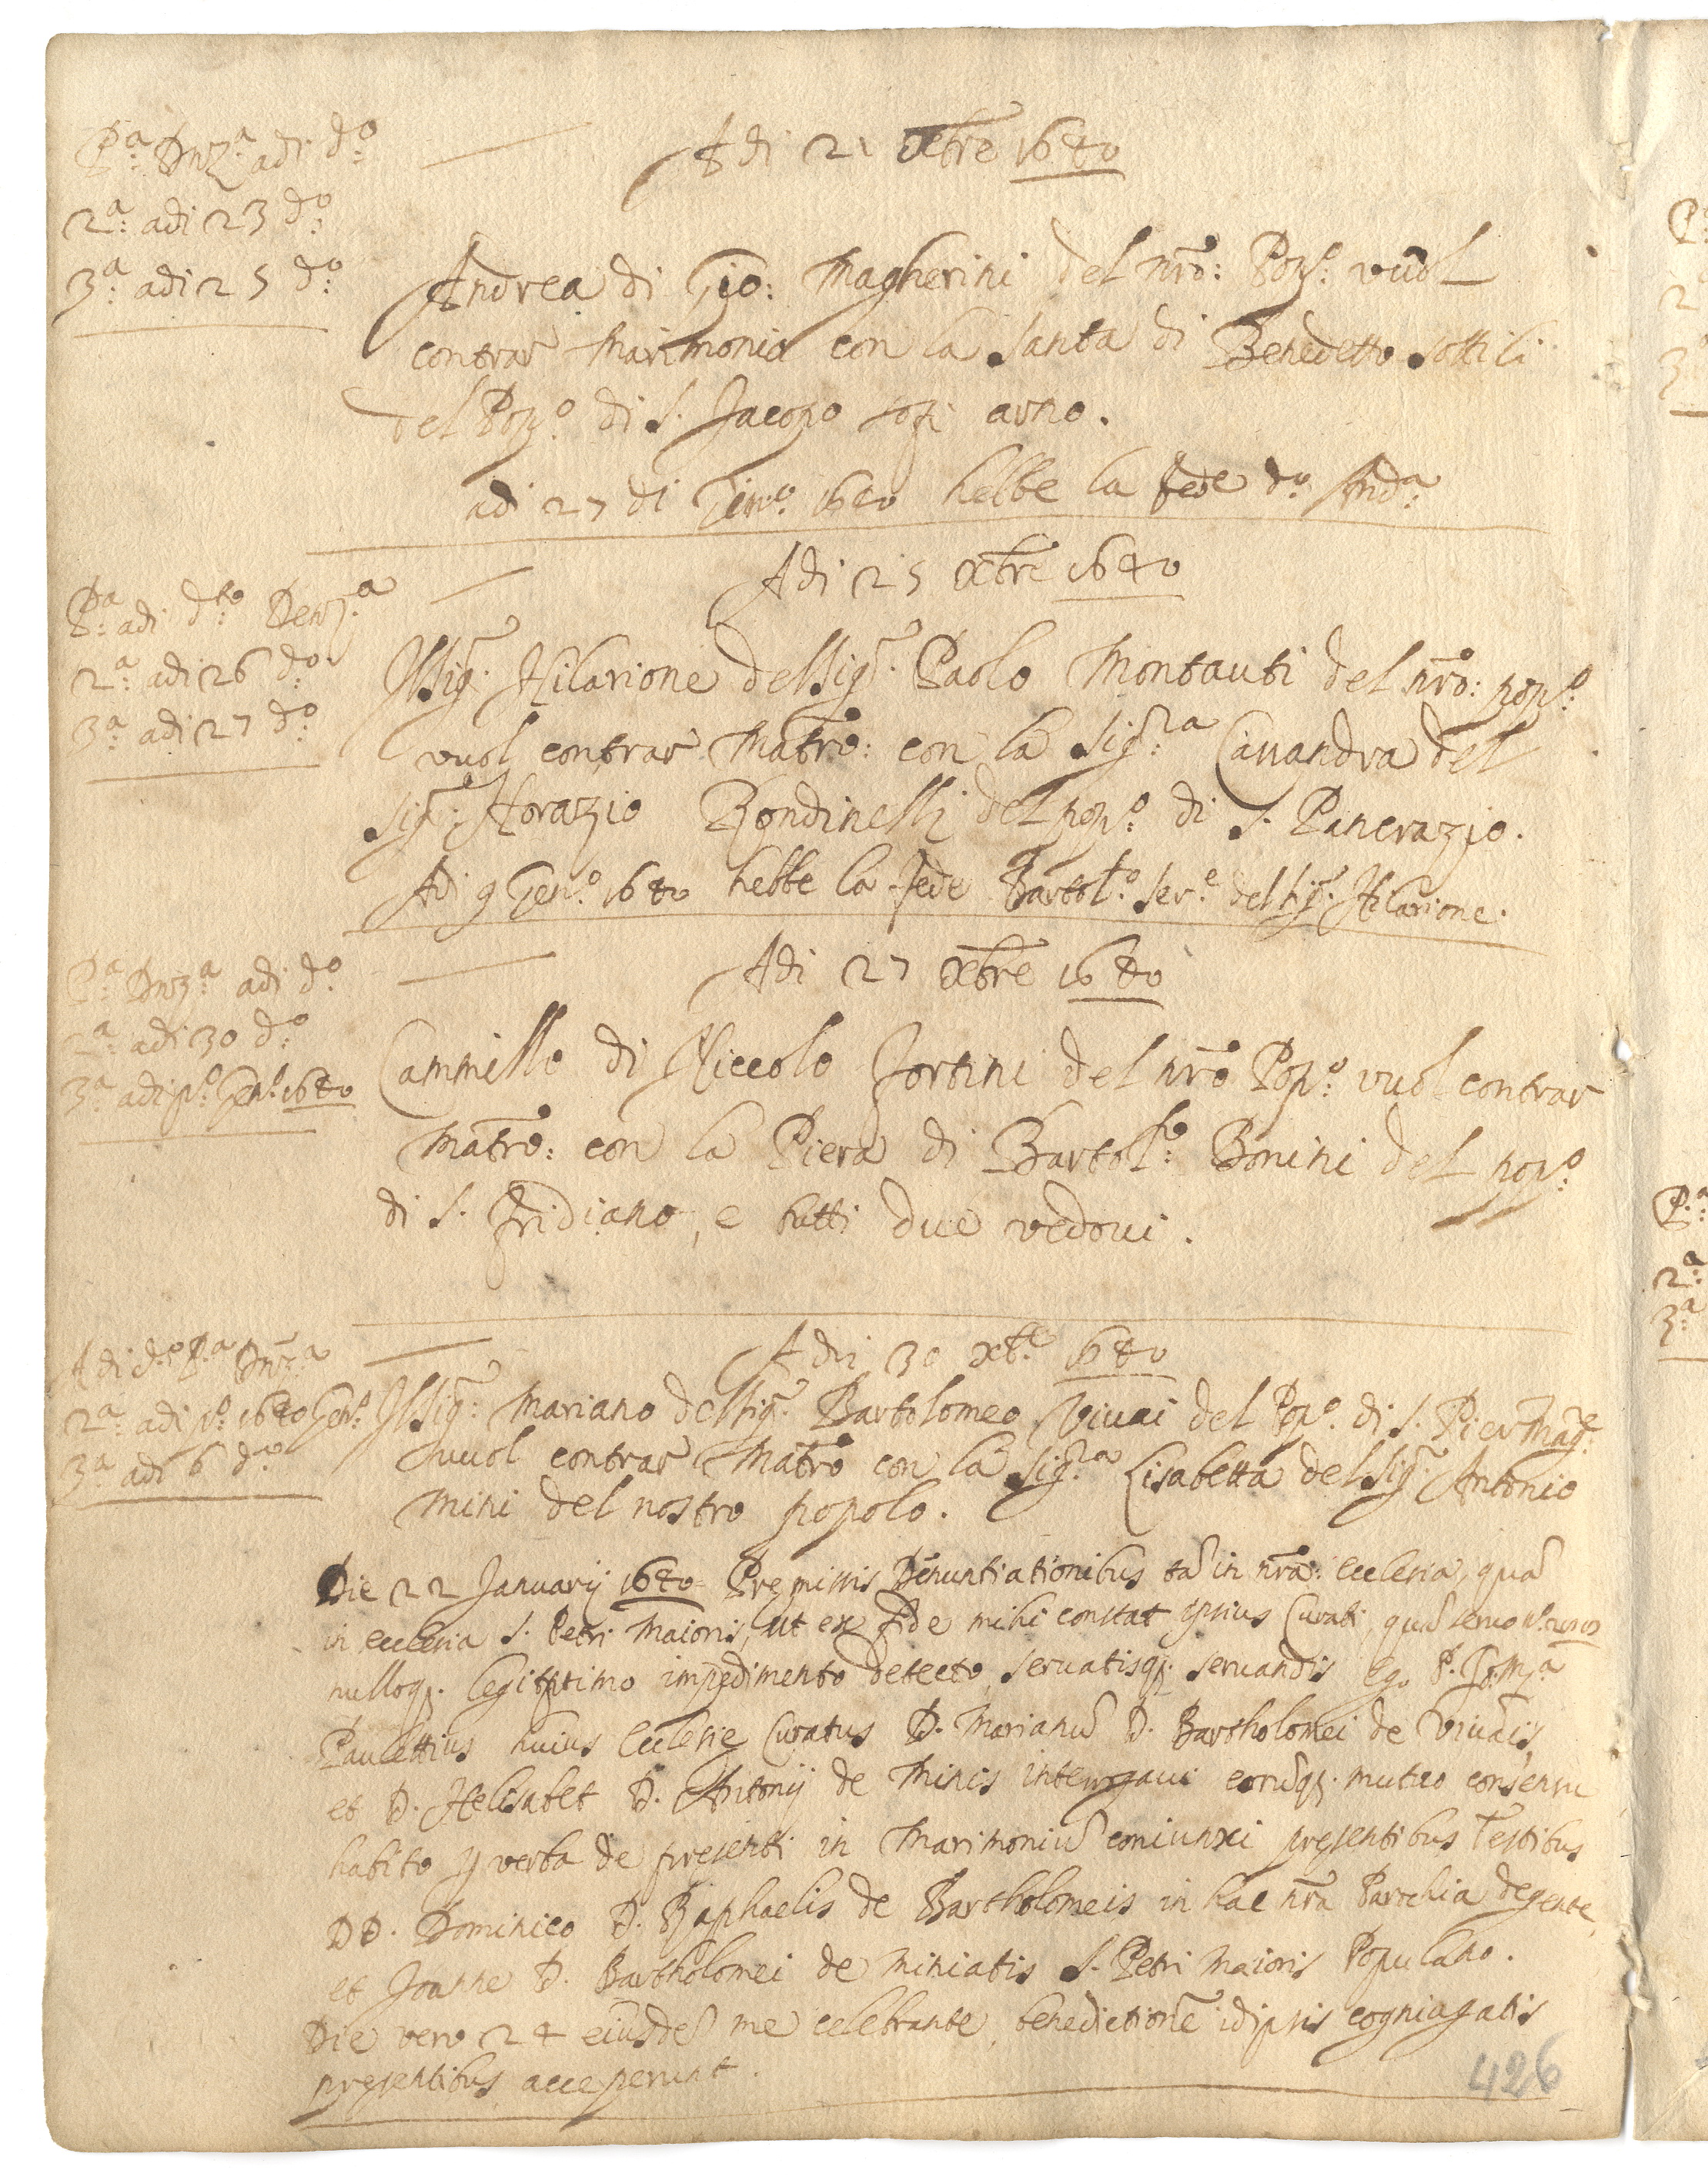 Adi 21 xbre 1640
Pa: Dnza: adi do:
2a: adi 23 do:
3a: adi 25 do:
Andrea di Gio: Magherini del nro: Popo: vuol
contrar Marimonio con la Santa di Benedetto sottili
del Popo: di S. Jacopo sopr arno.
adi 27 di Genno: 1640 hebbe la fede do: Anda:
Adi 25 xbre 1640
Pa: adi dto: Denza:
2a: adi 26 do:
3a: adi 27 do:
Il Sig: Hilarione del Sig: Paolo Montauti del nro: popo:
vuol contrar Matro: con la Sigra: Cassandra del
Sig: Horazio Rondinelli del popo: di S. Pancrazio.
Adi 9 Geno: 1640 hebbe la fede Bartolo: Sere: del Sig: Hilarione.
Adi 27 xbre 1640
Pa: Dnza: adi do:
2a: adi 30 do:
3a: adi po: Geno: 1640
Cammillo di Niccolo Fortini del nro Popo: vuol contrar
Matro: con la Piera di Bartolo: Bonini del popo:
di S. Fridiano, e tutti due vedoui.
Adi 30 xbe: 1640
Adi do: Pa: Dnza:
2a: adi po: 1640 Geno:
3a: adi 6 do:
Il Sig: Mariano del Sig: Bartolomeo Viuai del Popo: di S. Pier Mage:
vuol contrar Matro con la Sigra: Lisabetta del Sig: Antonio
Mini del nostro popolo.
Die 22 Januarij 1640 Premissis Denuntiationibus tam in nra: Ecclesia, quam
in ecclesia S. Petri Maioris, ut ex fide mihi constat ipsius Curati, quam seruo
nulloq. legitptimo impedimento detecto, seruatisq. seruandis Ego P.
Paulettius huius Ecclesie Curatus D. Marianum D. Bartholomei de Viuais,
et D. Helisabet D. Antonij de Minis interrogaui eorumq. mutuo consensu
habito p verba de presenti in Marimonium coniunxi presentibus Testibus
DD. Dominico D. Raphaelis de Bartholomeis in hac nra Parochia degente,
et Joanne D. Bartholomei de Miniatis S. Petri Maioris Populano.
Die vero 24 eiusdem me celebrante, benedictionem idipsis
presentibus acceperunt.
426